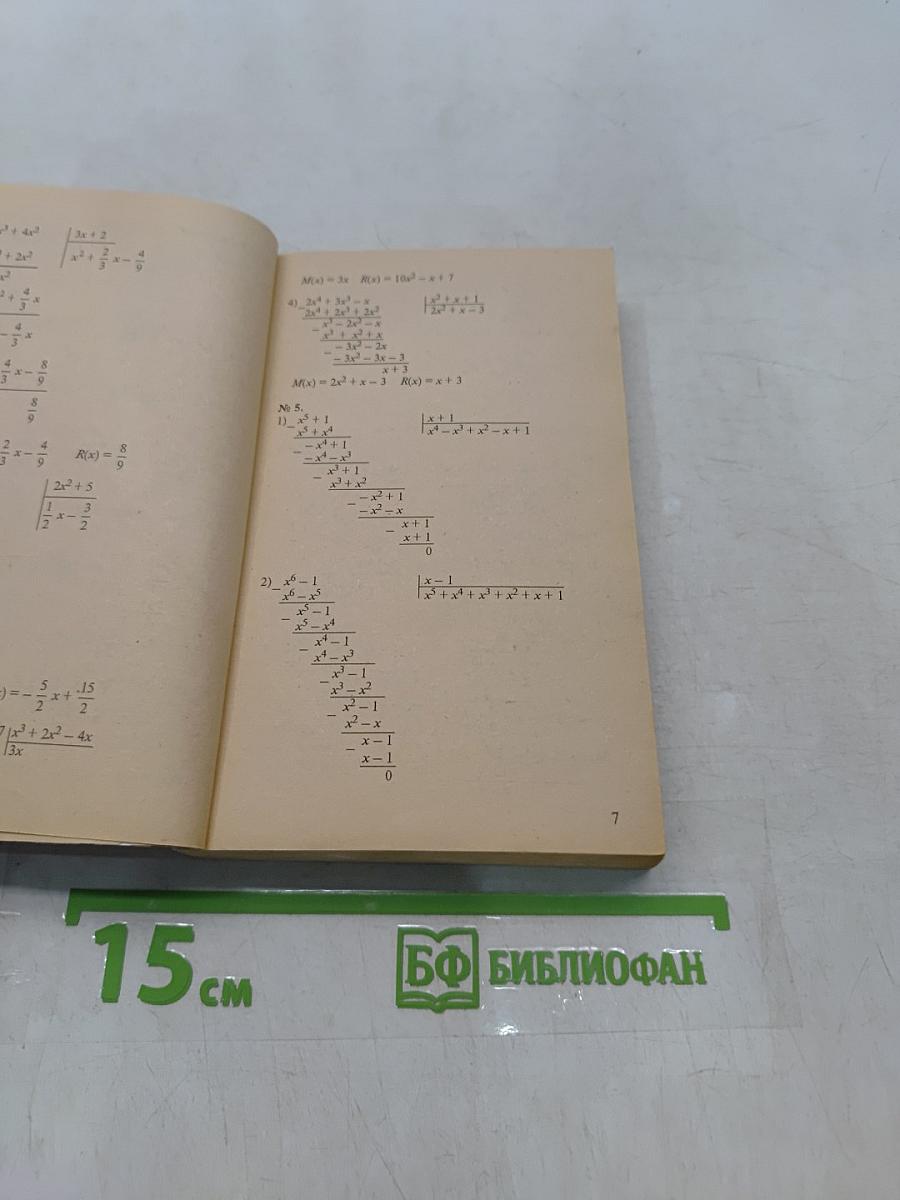 x³ + 4x²
3x + 2
+ 2x²
x² + 2/3 x − 4/9
x²
+ 4/3 x
− 4/3 x
4/3 x − 8/9
8/9
2/3 x − 4/9 R(x) = 8/9
2x² + 5
1/2 x − 3/2
) = − 5/2 x + 15/2
7 x³ + 2x² − 4x
3x
M(x) = 3x R(x) = 10x² − x + 7
4) 2x⁴ + 3x³ − x
x² + x + 1
2x⁴ + 2x³ + 2x²
2x² + x − 3
− x³ − 2x² − x
x³ + x² + x
− − 3x² − 2x
− 3x² − 3x − 3
x + 3
M(x) = 2x² + x − 3 R(x) = x + 3
№ 5.
1) − x⁵ + 1
x + 1
x⁵ + x⁴
x⁴ − x³ + x² − x + 1
− − x⁴ + 1
− x⁴ − x³
− x³ + 1
x³ + x²
− − x² + 1
− x² − x
− x + 1
x + 1
0
2) − x⁶ − 1
x − 1
x⁶ − x⁵
x⁵ + x⁴ + x³ + x² + x + 1
− x⁵ − 1
x⁵ − x⁴
− x⁴ − 1
x⁴ − x³
− x³ − 1
x³ − x²
− x² − 1
x² − x
− x − 1
x − 1
0
7
15 см
БФ БИБЛИОФАН